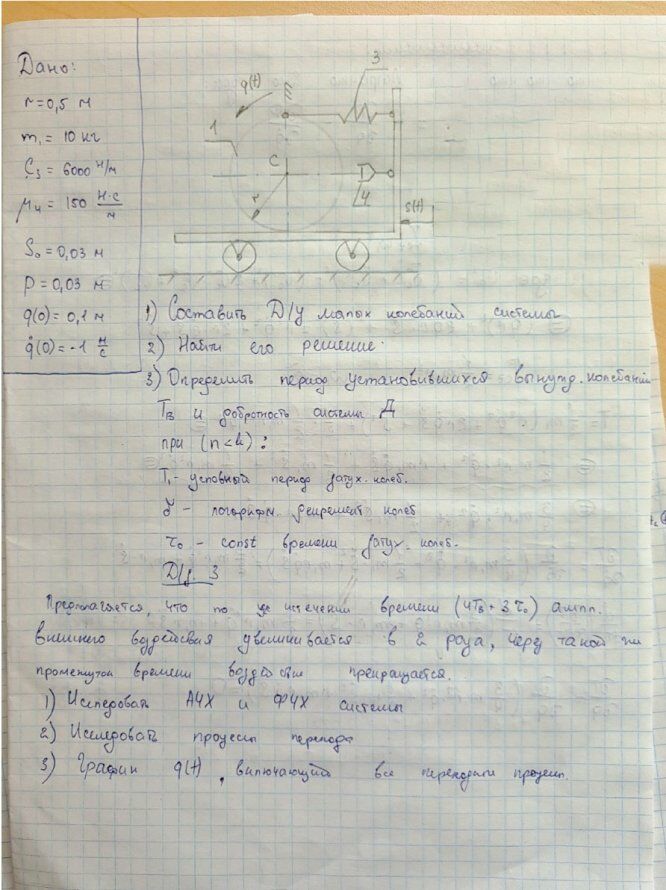 Дано:
r = 0,5 м
m₁ = 10 кг
C₃ = 6000 н/м
μ₄ = 150 н·с/м
S₀ = 0,03 м
p = 0,03 м
q(0) = 0,1 м
q̇(0) = -1 м/с
q(t)
3
1
C
r
4
S(t)
1) Составить Д/У малых колебаний системы
2) Найти его решение.
3) Определить период установившихся вынужд. колебаний
Tв и добротность системы Д
при (n<k) :
T₁ - условный период затух. колеб.
- логарифм. декремент колеб
τ₀ - const времени затух. колеб.
Д/з. 3
Предполагается, что по истечении времени (4Tв + 3τ₀) ампл.
внешнего воздействия увеличивается в 2 раза, через такой же
промежуток времени воздействие прекращается.
1) Исследовать АЧХ и ФЧХ системы
2) Исследовать процессы перехода
3) График q(t), включающий все переходные процессы.